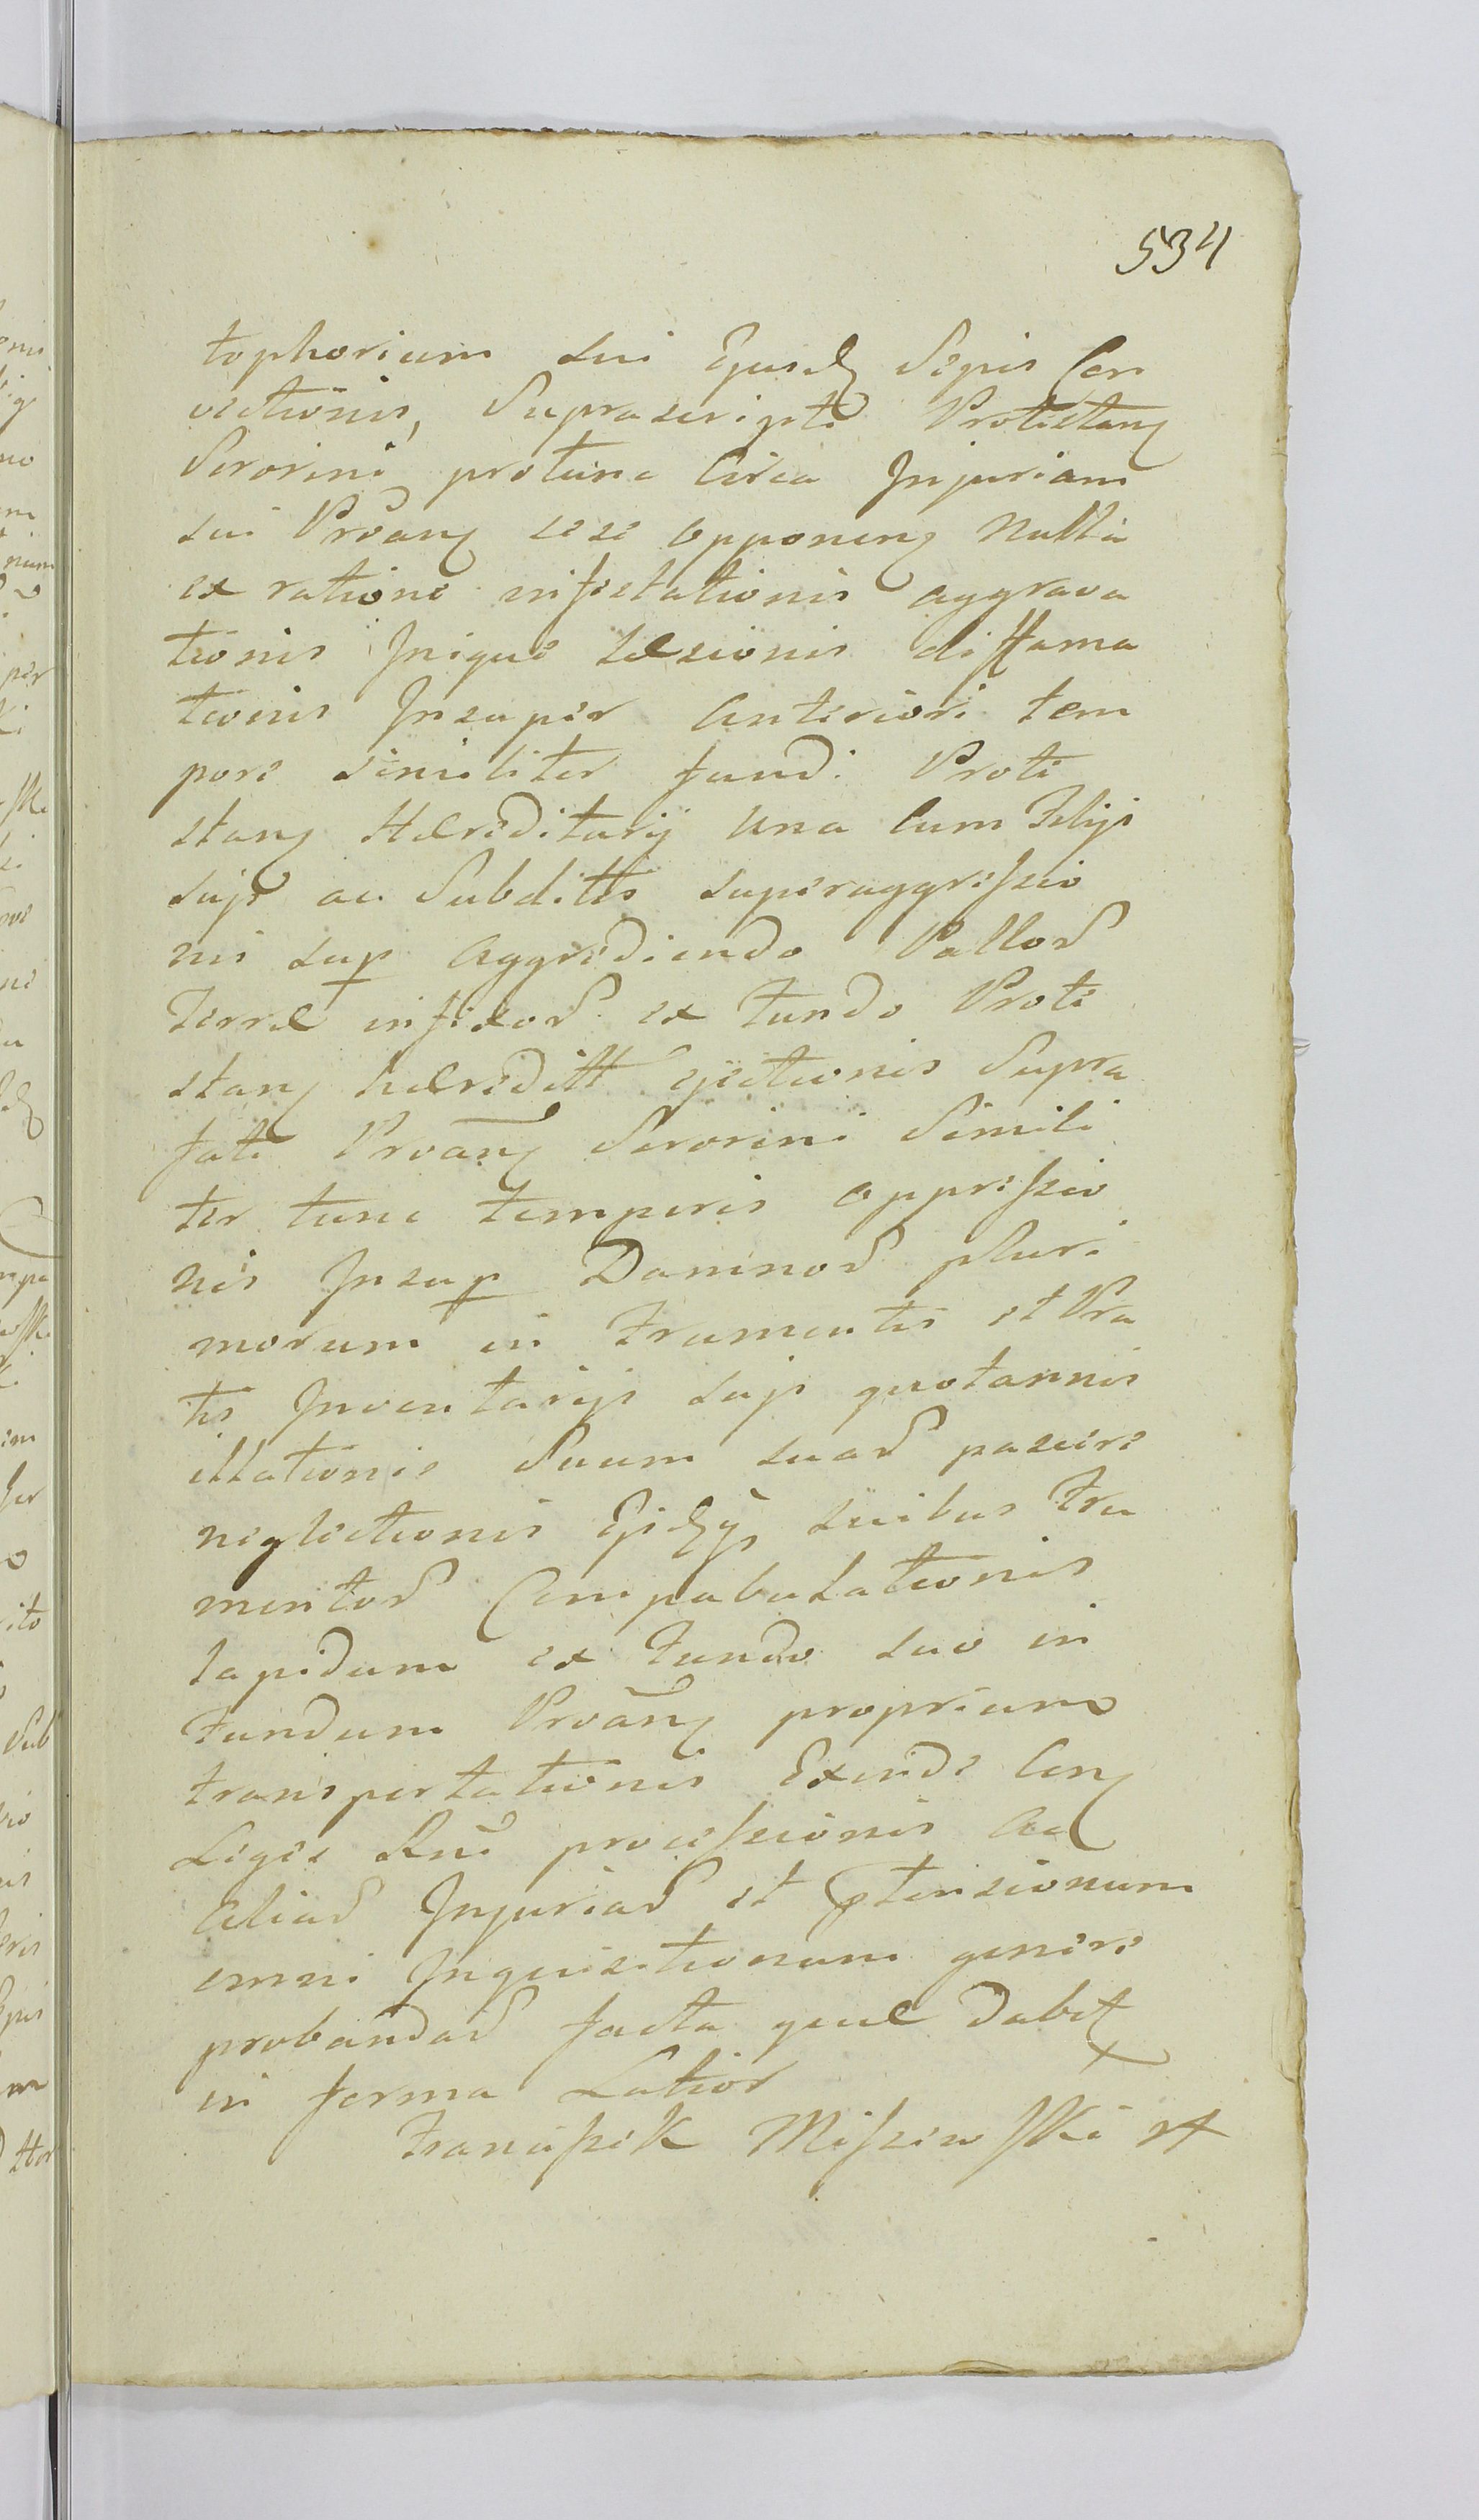 534
tophorium sui Ejusd Sepis Con
vectionis, Suprascripti Protestang
Sororini protunc Circa Injuriam
sui Prrang sese opponeng nulla
ex ratione infestationis aggrava
tionis Inique Læsionis diffama
tionis Insuper Anteriori tem
pore similiter fundi Prote
stang Hæreditarij una Cum Filijs
sujs ac Subditis superaggressio
nis sup Aggrediendo Pallor
Terræ infixor ex Fundo Prote
stang hæreditt ejectionis Supra
fati Prrang Sororini Simili
ter tunc temporis oppressio
nis Insup Damnor pluri
morum in Frumentis et Pra
tis Inventarijs sujs quotannis
illationis Suum suar pascere
neglectionis suibus Fru
mentor Compabulationis
lapidum ex Fundo suo in
Fundum Prrang proprium
transportationis Exinde Cong
Leges Rni processionis Ac
Aliar Injuriar et ptensionum
omni Inquisitionum genere
probandar facta quæ dabit
in forma Latior
Franciszek Miszewski